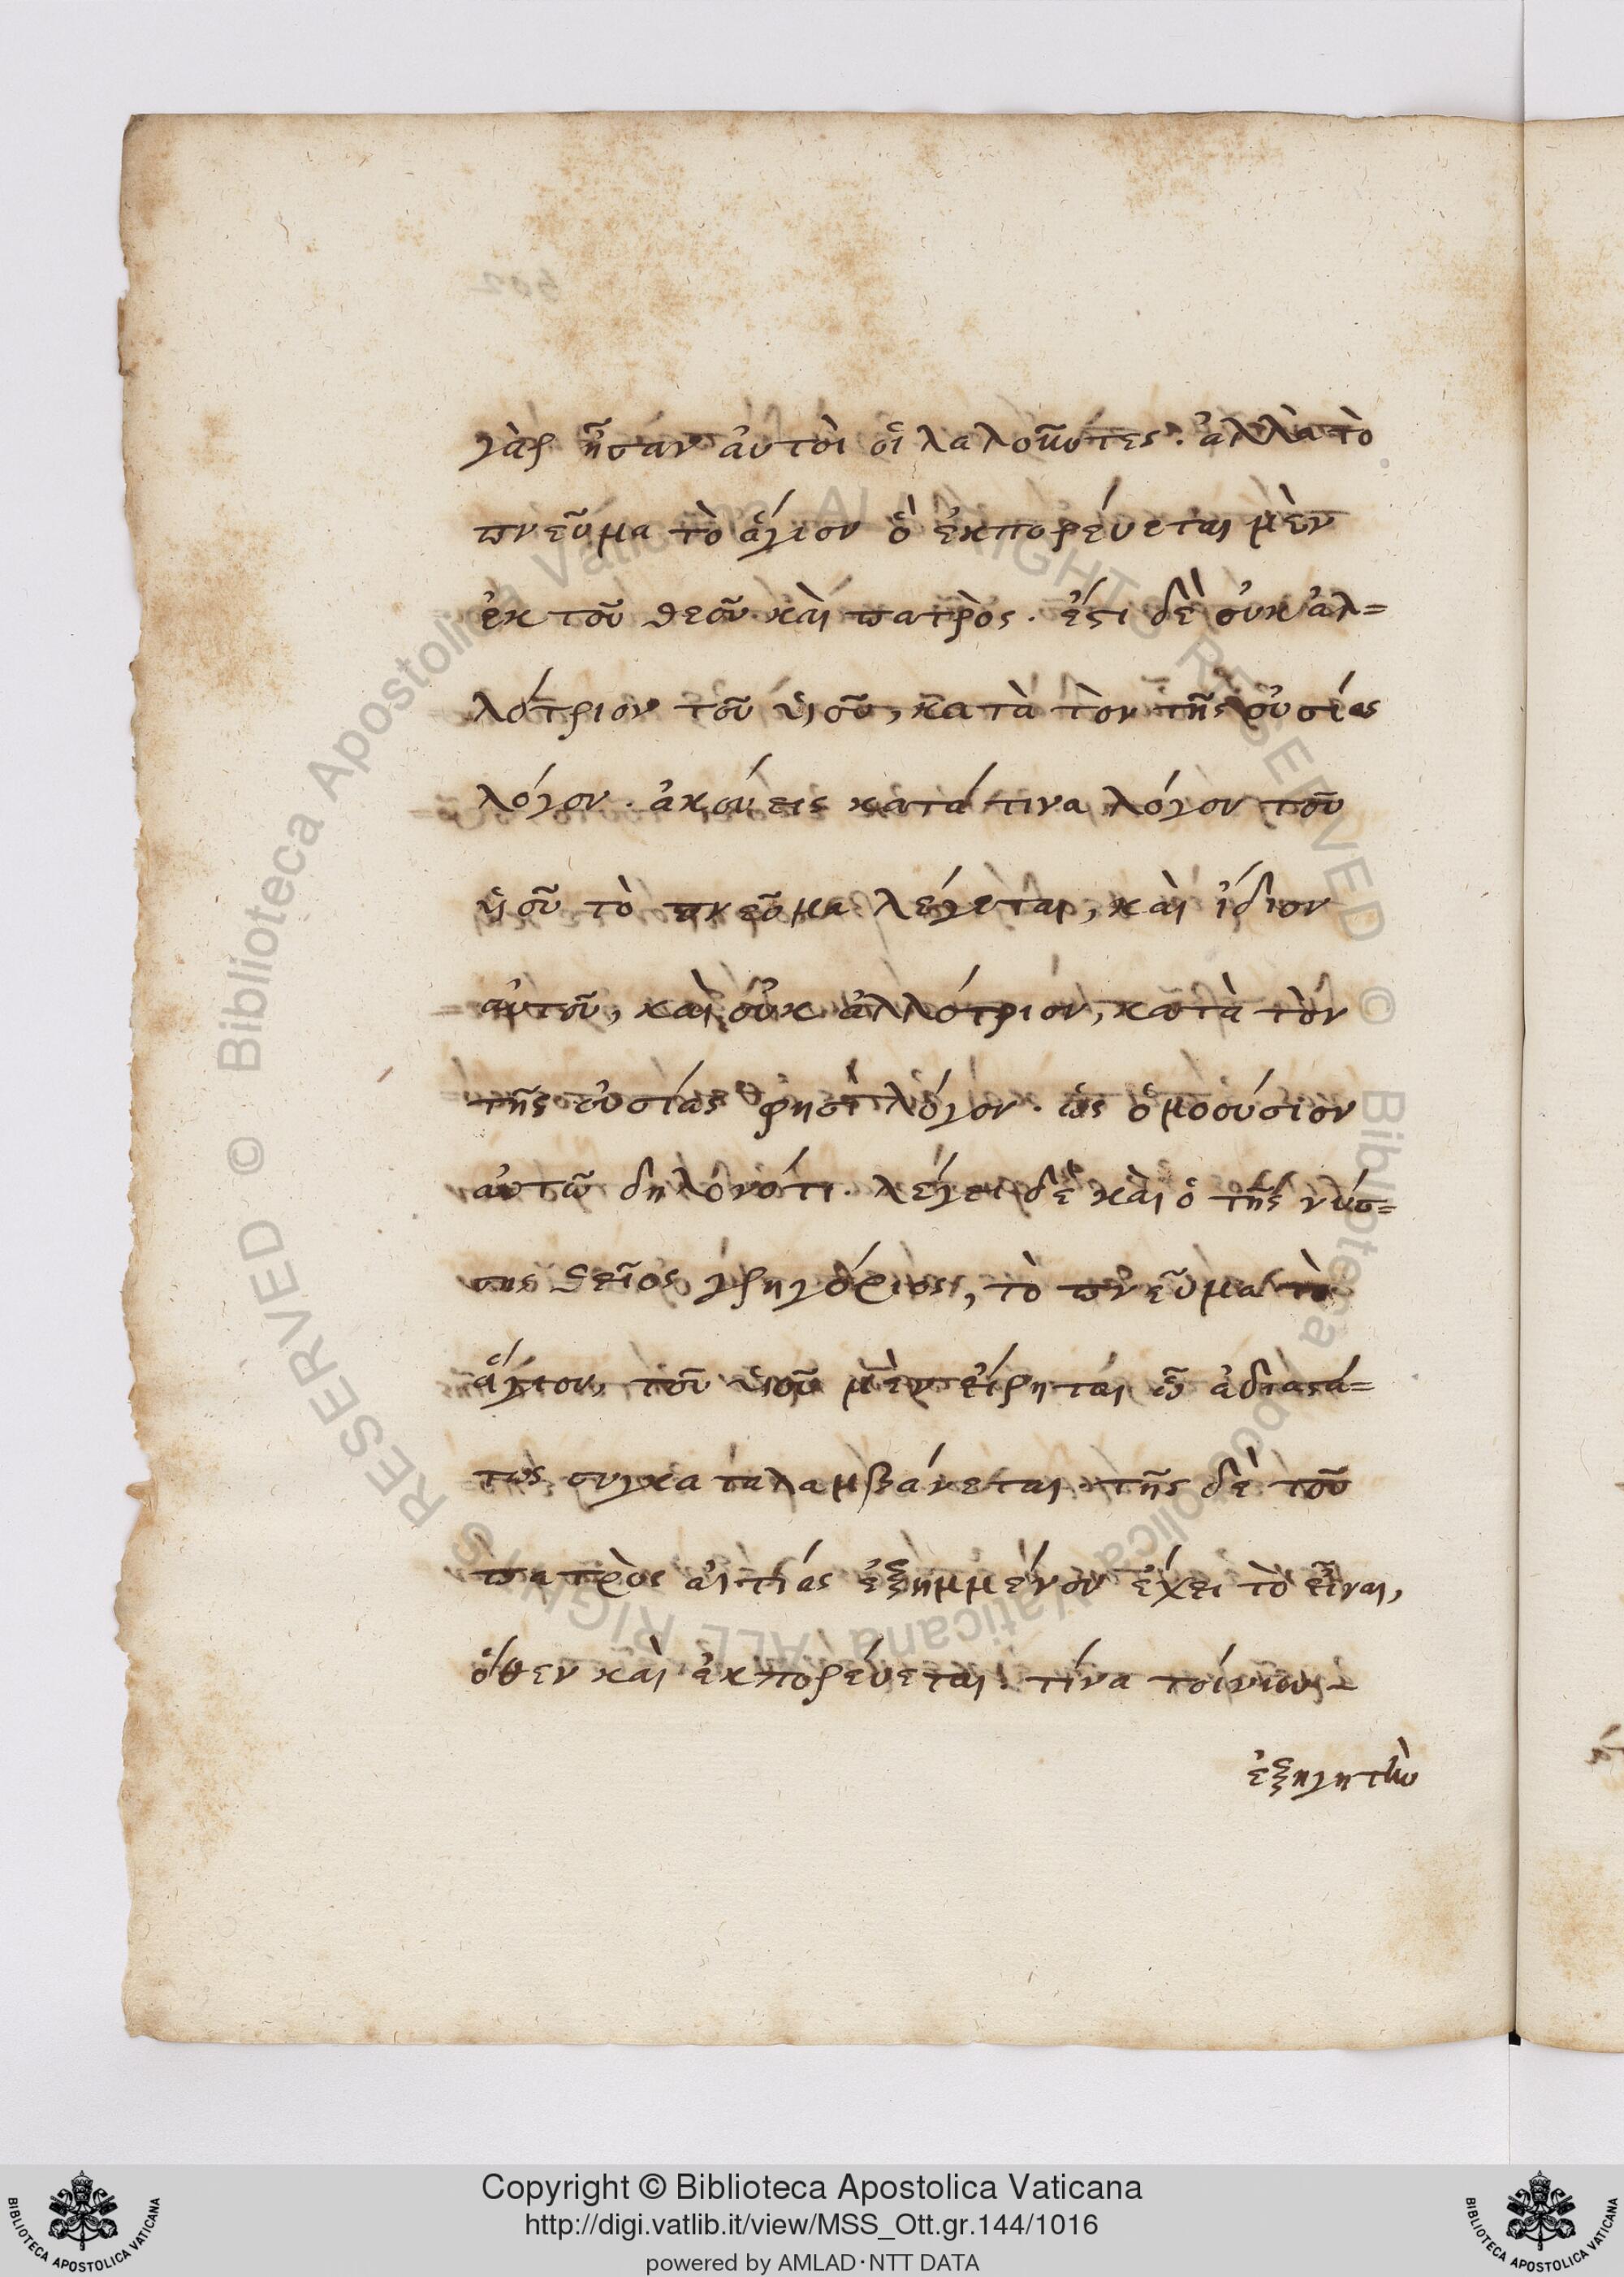 γὰρ ἦσαν αὐτοὶ οἱ λαλοῦντες. ἀλλὰ τὸ
πνεῦμα τὸ ἅγιον ὃ ἐκπορεύεται μὲν
ἐκ τοῦ θεοῦ καὶ πατρὸς. ἔστι δὲ οὐκ ἀλ=
λότριον τοῦ υἱοῦ, κατὰ τὸν τῆς οὐσίας
λόγον. ἀκούεις κατά τινα λόγον τοῦ
υἱοῦ τὸ πνεῦμα λέγεται, καὶ ἴδιον
αὐτοῦ, καὶ οὐκ ἀλλότριον, κατὰ τὸν
τῆς οὐσίας φησὶ λόγον. ὡς ὁμοούσιον
αὐτῶ δηλονότι. λέγει δὲ καὶ ὁ τῆς νύσ=
σης θεῖος γρηγόριος, τὸ πνεῦμα τὸ
ἅγιον, τοῦ υἱοῦ μὲν εἴρηται ὧ ἀδιαστά=
τως συγκαταλαμβάνεται. τῆς δὲ τοῦ
πατρὸς αἰτίας ἐξημμένον ἔχει τὸ εἶναι,
ὅθεν καὶ ἐκπορεύεται. τίνα τοίνυν
ἐξηγητὴν
Copyright © Biblioteca Apostolica Vaticana
http://digi.vatlib.it/view/MSS_Ott.gr.144/1016
powered by AMLAD·NTT DATA
BIBLIOTECA APOSTOLICA VATICANA
BIBLIOTECA APOSTOLICA VATICANA
Biblioteca Apostolica Vaticana ALL RIGHTS RESERVED ©
Biblioteca Apostolica Vaticana ALL RIGHTS RESERVED ©